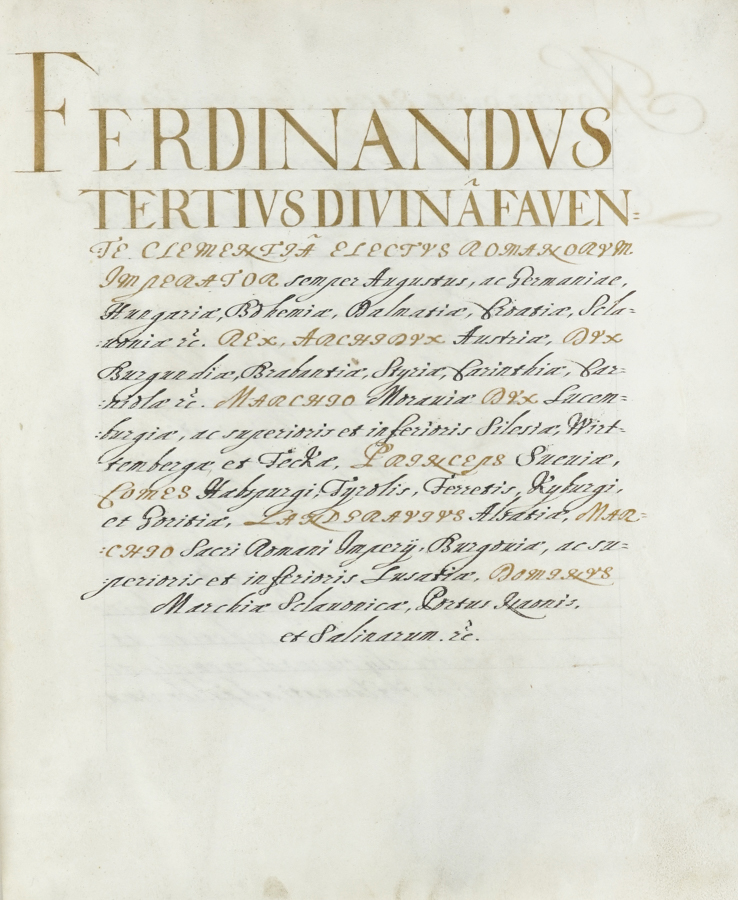 FERDINANDVS
TERTIVS DIVINÂ FAVEN=
TE CLEMENTIÂ ELECTVS ROMANORVM
IMPERATOR semper Augustus, ac Germaniae,
Hungariæ, Bohemiæ, Dalmatiæ, Croatiæ, Scla=
=uoniæ &c. REX, ARCHIDVX Austriæ, DVX
Burgundiæ, Brabantiæ, Styriæ, Carinthiæ, Car=
=niolæ &c. MARCHIO Morauiæ DVX Lucem=
=burgiæ, ac superioris et inferioris Silesiæ, Wirt=
=tembergæ et Teckæ, PRINCEPS Sueuiæ,
COMES Habspurgi, Tyrolis, Ferretis, Kyburgi,
et Goritiæ, LANDGRAVIVS Alsatiæ, MAR=
=CHIO Sacri Romani Imperij, Burgouiæ, ac su=
=perioris et inferioris Lusatiæ, DOMINVS
Marchiæ Sclauonicæ, Portus Naonis,
et Salinarum. &c.